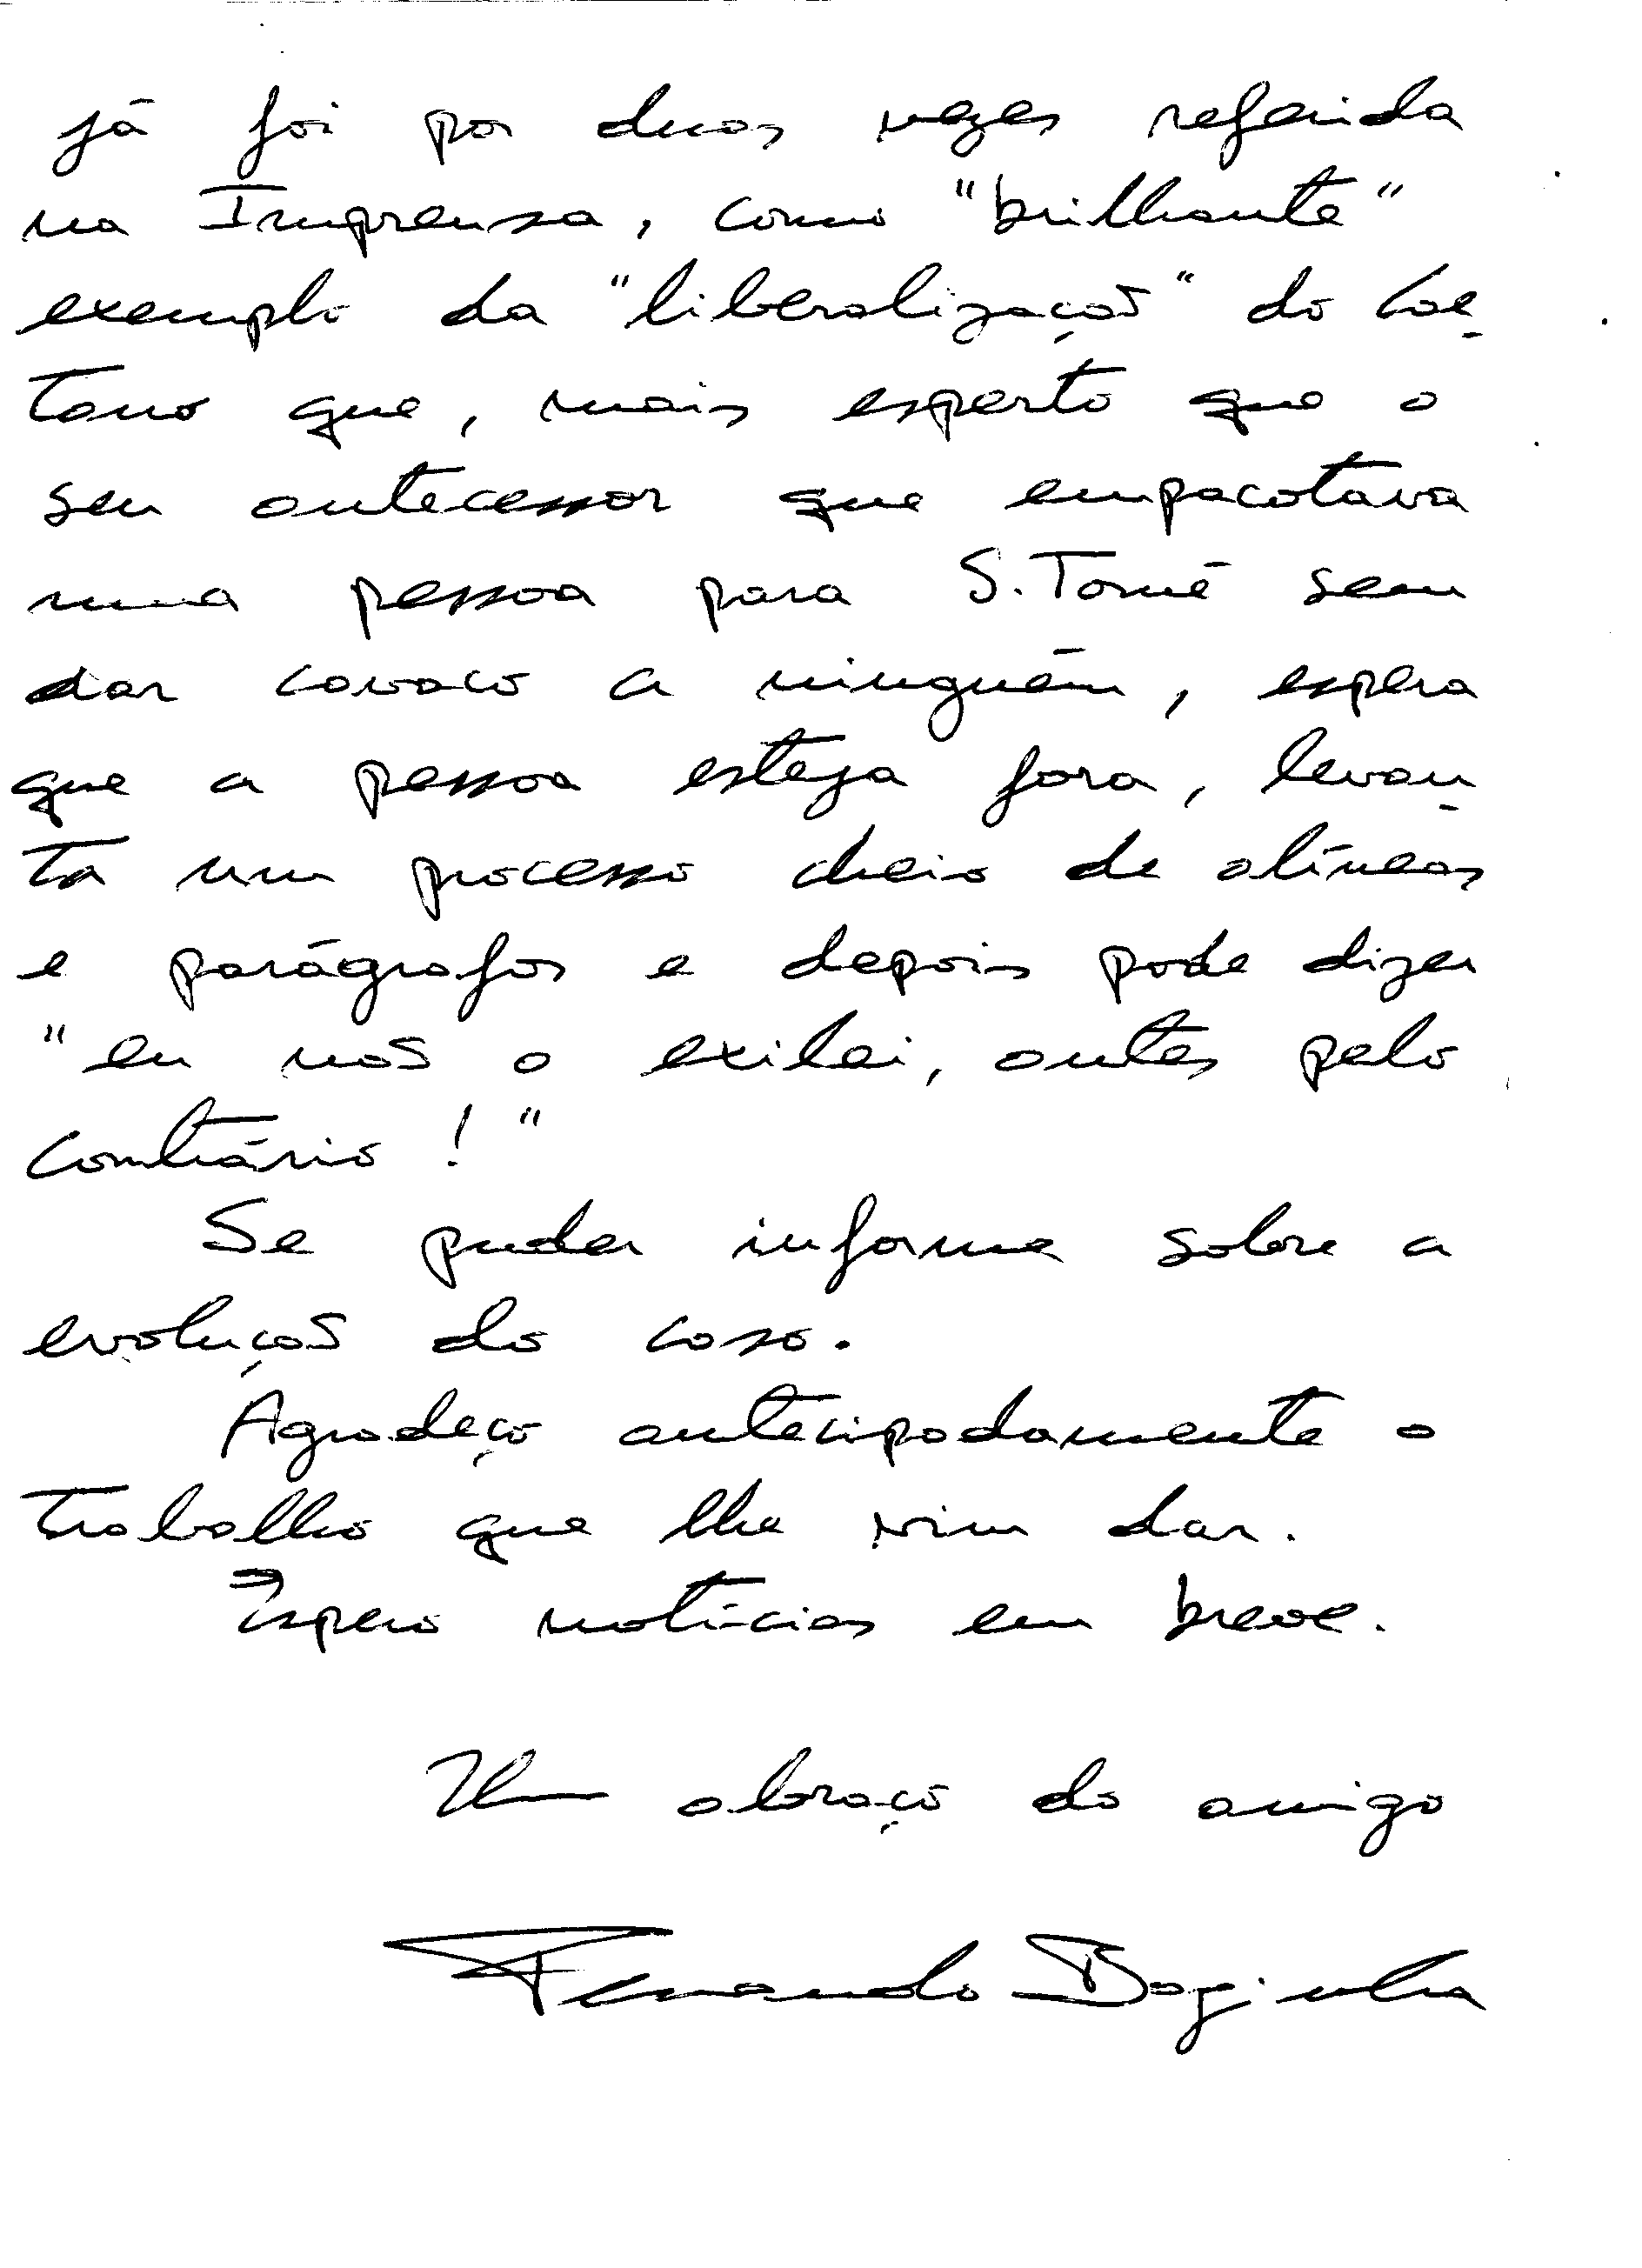 já foi por duas vezes referida
na Imprensa, como "brilhante"
exemplo da "liberalização" do Cae
tano que, mais esperto que o
seu antecessor que empacotava
uma pessoa para S. Tomé sem
dar cavaco a ninguém, espera
que a pessoa esteja fora, levan
ta um processo cheio de alíneas
e parágrafos e depois pode dizer
"eu não o exilei, antes pelo
contrário!"
Se puder informe sobre a
evolução do caso.
Agradeço antecipadamente o
trabalho que lhe vim dar.
Espero notícias em breve.
Um abraço do amigo
Fernando Baginha